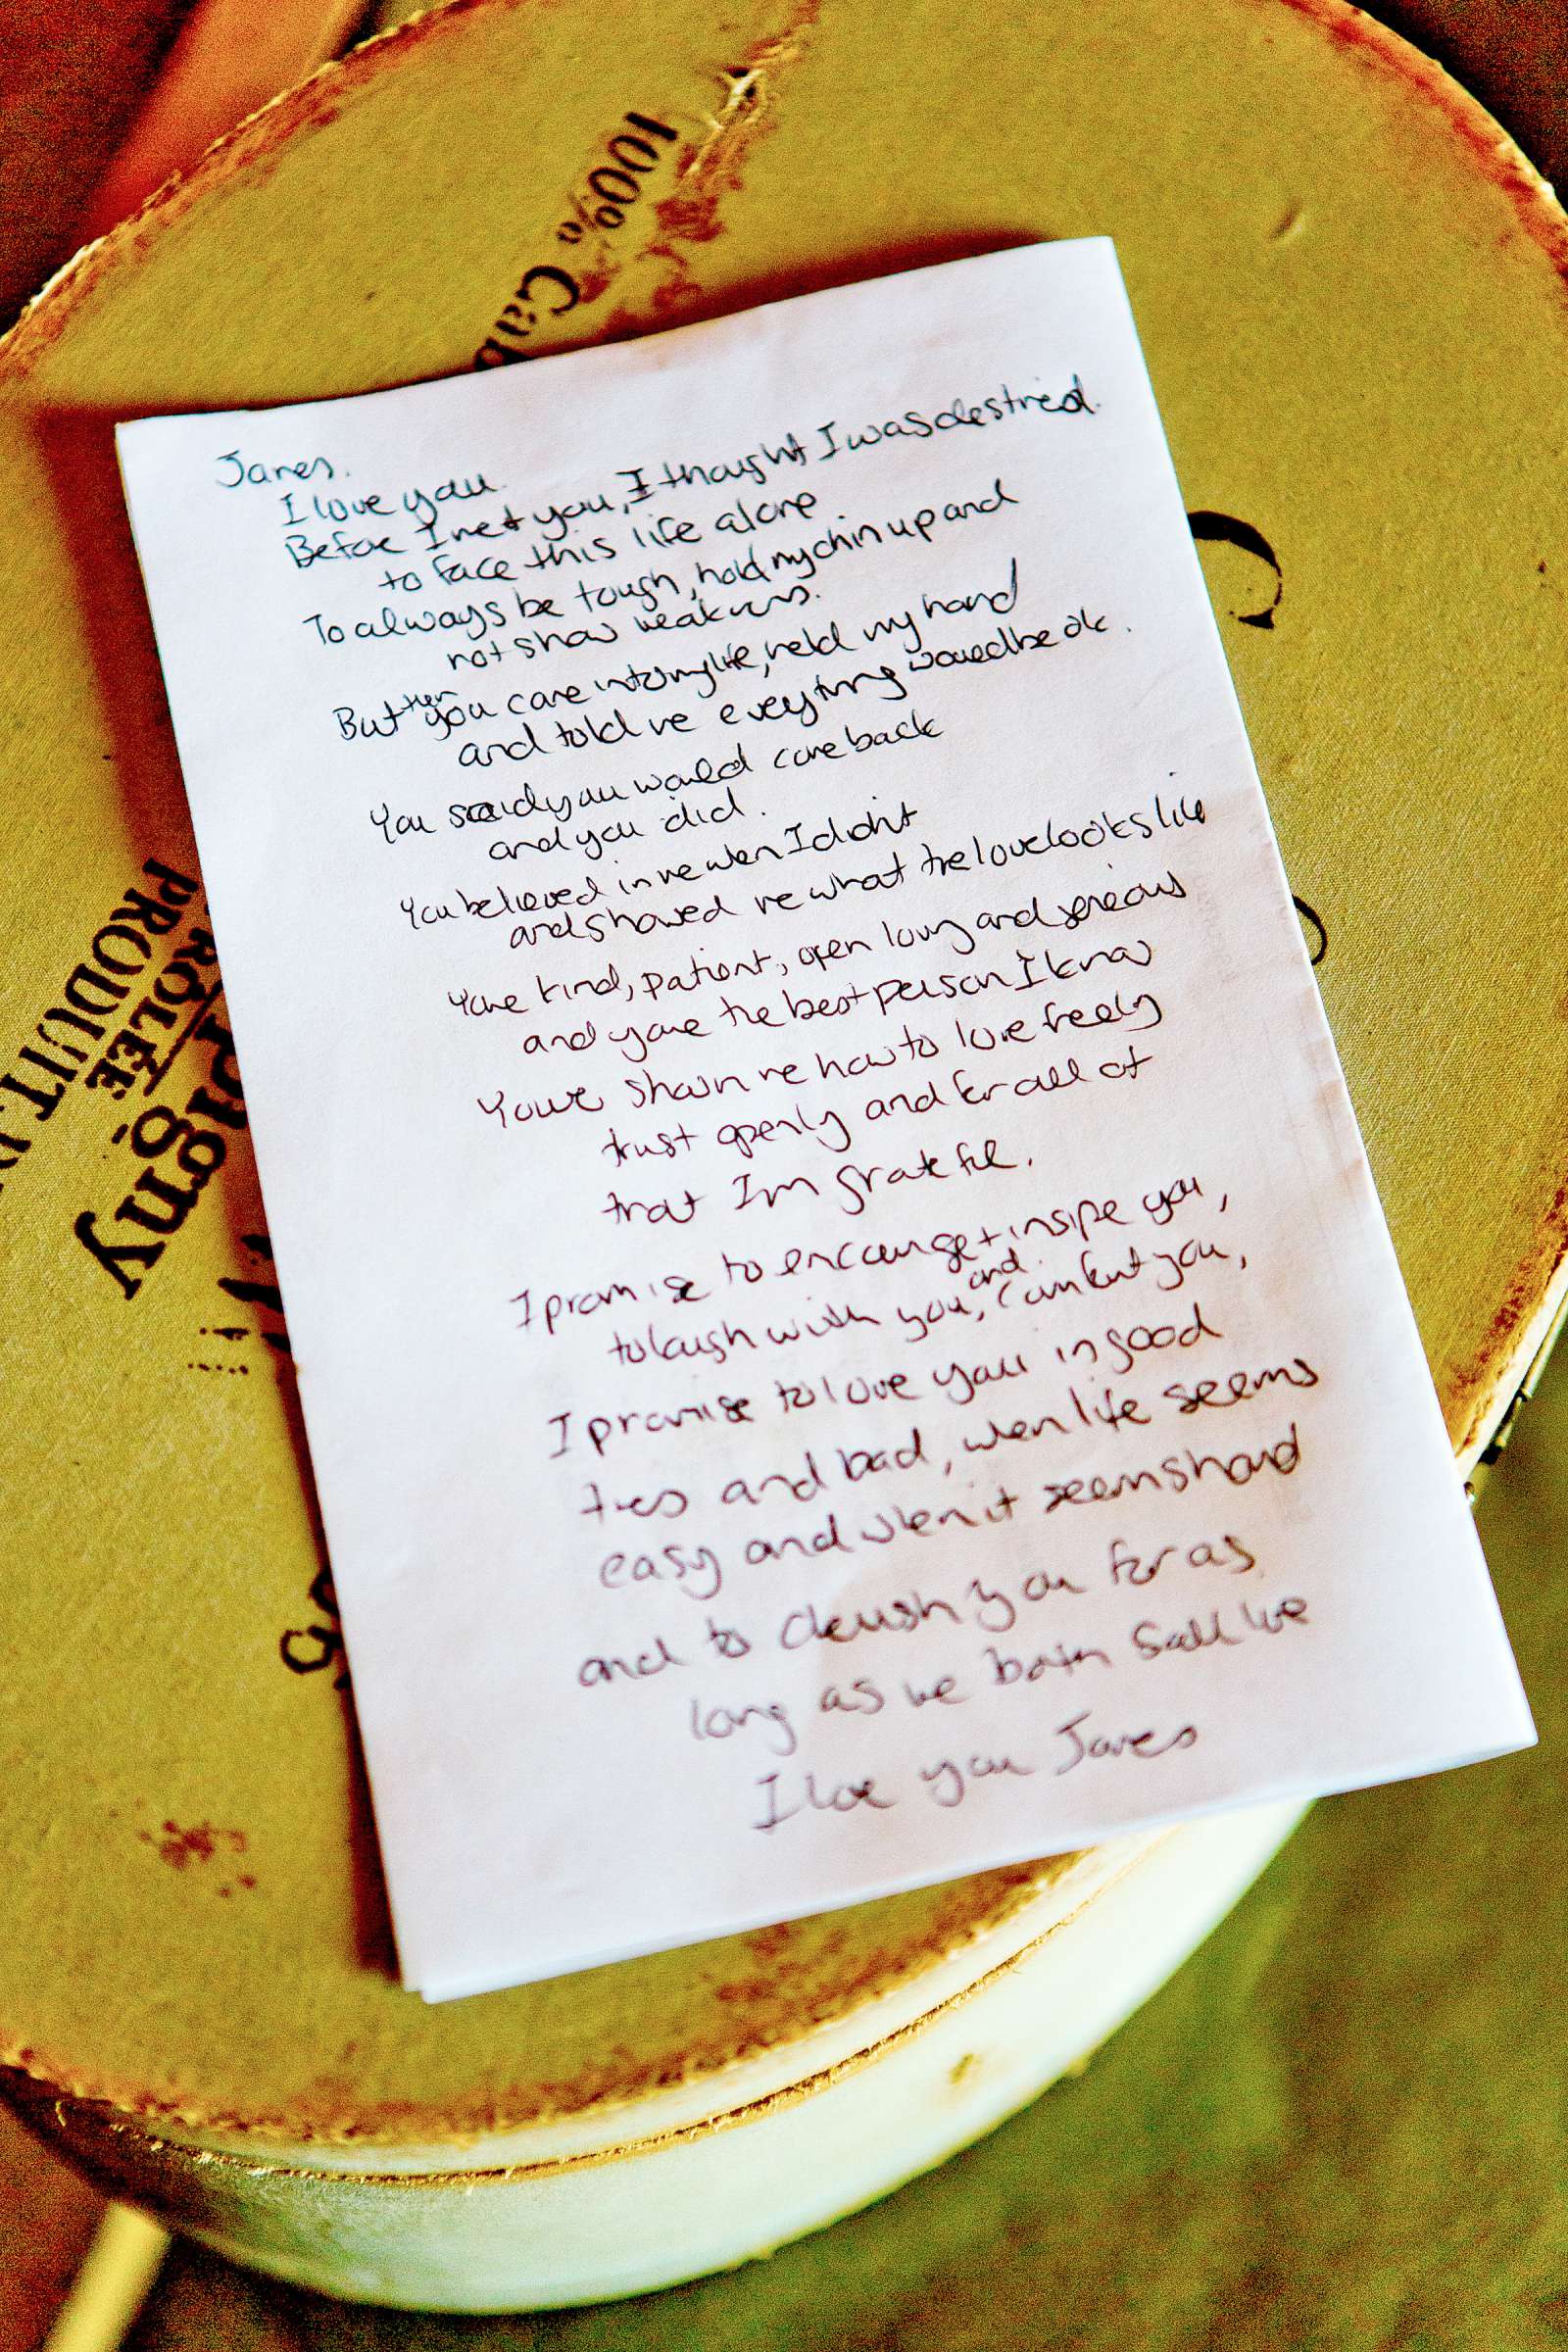 100% Cab
James.
I love you.
Before I met you, I thought I was destried.
to face this life alone
To always be tough, hold my chin up and
not show weakness.
But then you came into my life, held my hand
and told me everything would be ok.
You said you would come back
and you did.
You believed in me when I didn't
and showed me what true love looks like
You're kind, patient, open loving and
and you're the best person I know
You've shown me how to love freely
trust openly and for all of
that I'm grateful.
I promise to encourage + inspire you,
to laugh with you, and comfort you,
I promise to love you in good
times and bad, when life seems
easy and when it seems hard
and to cherish you for as
long as we both shall live
I love you James
PRODUIT
ROLÉE
PRODUIT
&
pigny